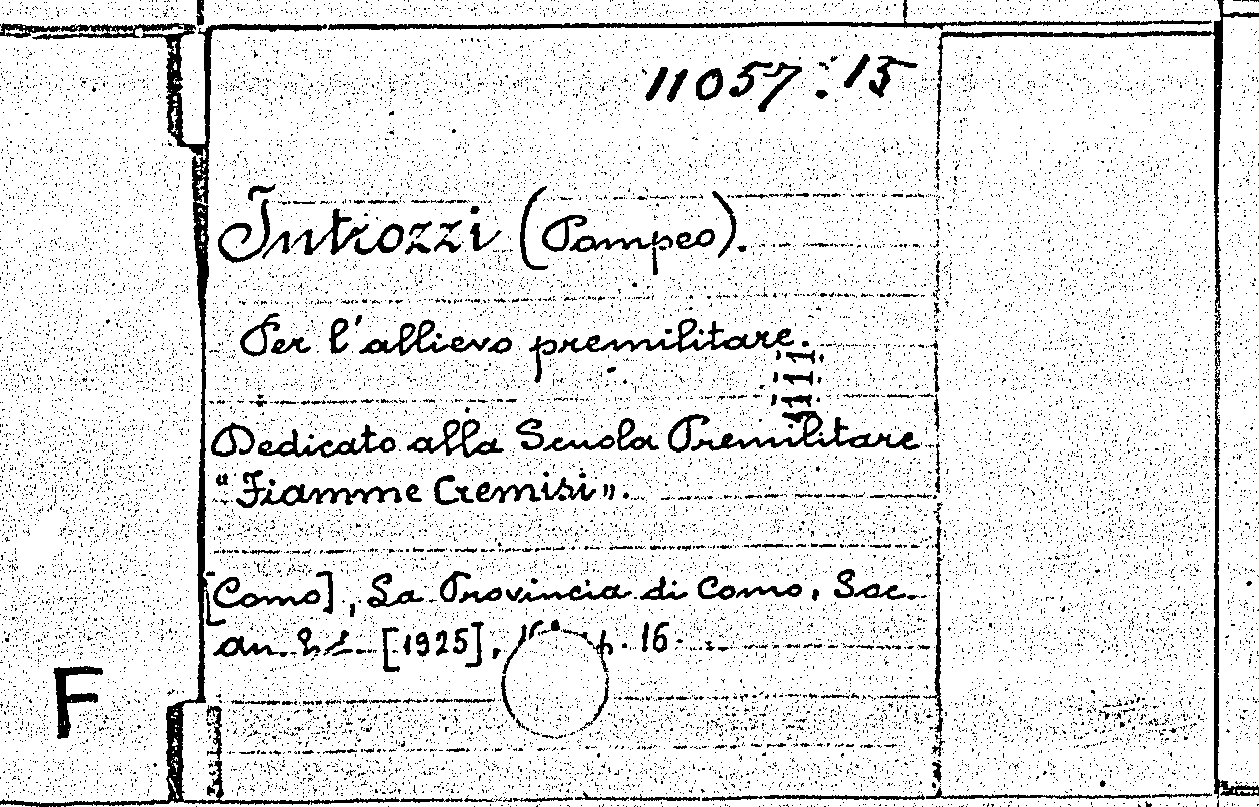 11057.15
Introzzi (Pompeo).
Per l'allievo premilitare.
Dedicato alla Scuola Premilitare
"Fiamme Cremisi".
[Como], La Provincia di Como, Soc.
an. [1925], p. 16.
F